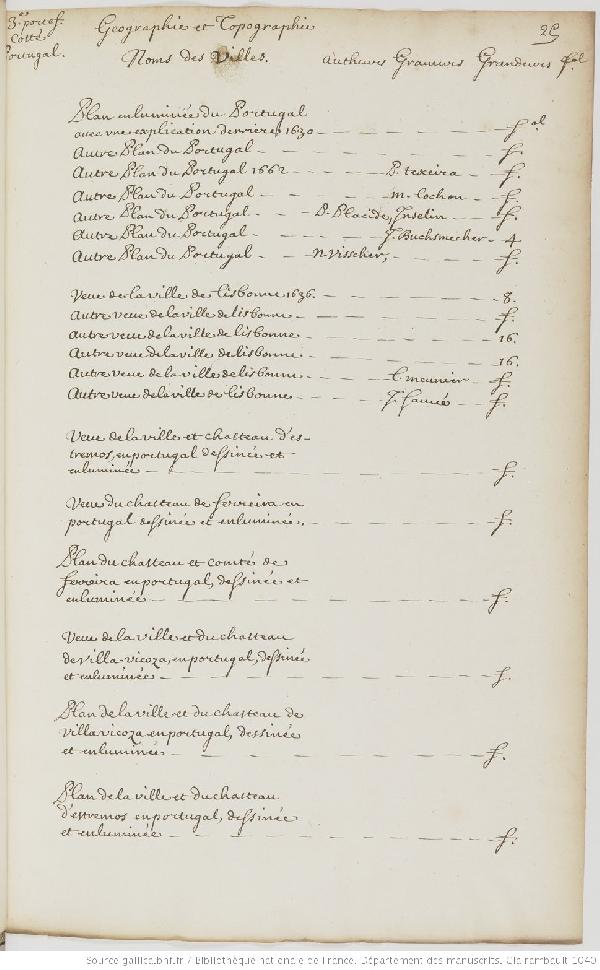 3.e portef. Geographie et Topographie 25
Cotté
Portugal. Noms des Villes. Autheurs Graveurs Grandeurs fol
Plan enluminée du Portugal
avec vne explication derriere 1630 — f.ol
Autre Plan du Portugal — f.
Autre Plan du Portugal 1662 — P. texeira — f.
Autre Plan du Portugal — m. Cochon — f.
Autre Plan du Portugal — P. Placide, Inselin — f.
Autre Plan du Portugal — J. Buchsmecher — 4
Autre Plan du Portugal — n. Visscher, — f.
Veue de la ville de lisbonne 1636. — 8.
Autre veue de la ville de lisbonne — f.
Autre veue de la ville de lisbonne — 16.
Autre veue de la ville de lisbonne — 16.
Autre veue de la ville de lisbonne — l. meunier — f.
Autre veue de la ville de lisbonne — f.
Veue de la ville et chasteau d'es-
tremos, en portugal dessinée et
enluminée — f.
Veue du chasteau de ferreira en
portugal dessinée et enluminée. — f.
Plan du chasteau et comté de
ferreira en portugal, dessinée et
enluminée — f.
Veue de la ville et du chasteau
de villa-vicoza, en portugal, dessinée
et enluminée — f.
Plan de la ville et du chasteau de
villavicoza en portugal, dessinée
et enluminée — f.
Plan de la ville et du chasteau
d'estremos en portugal, dessinée
et enluminée — f.
Source gallica.bnf.fr / Bibliothèque nationale de France. Département des manuscrits. Clairambault 1040